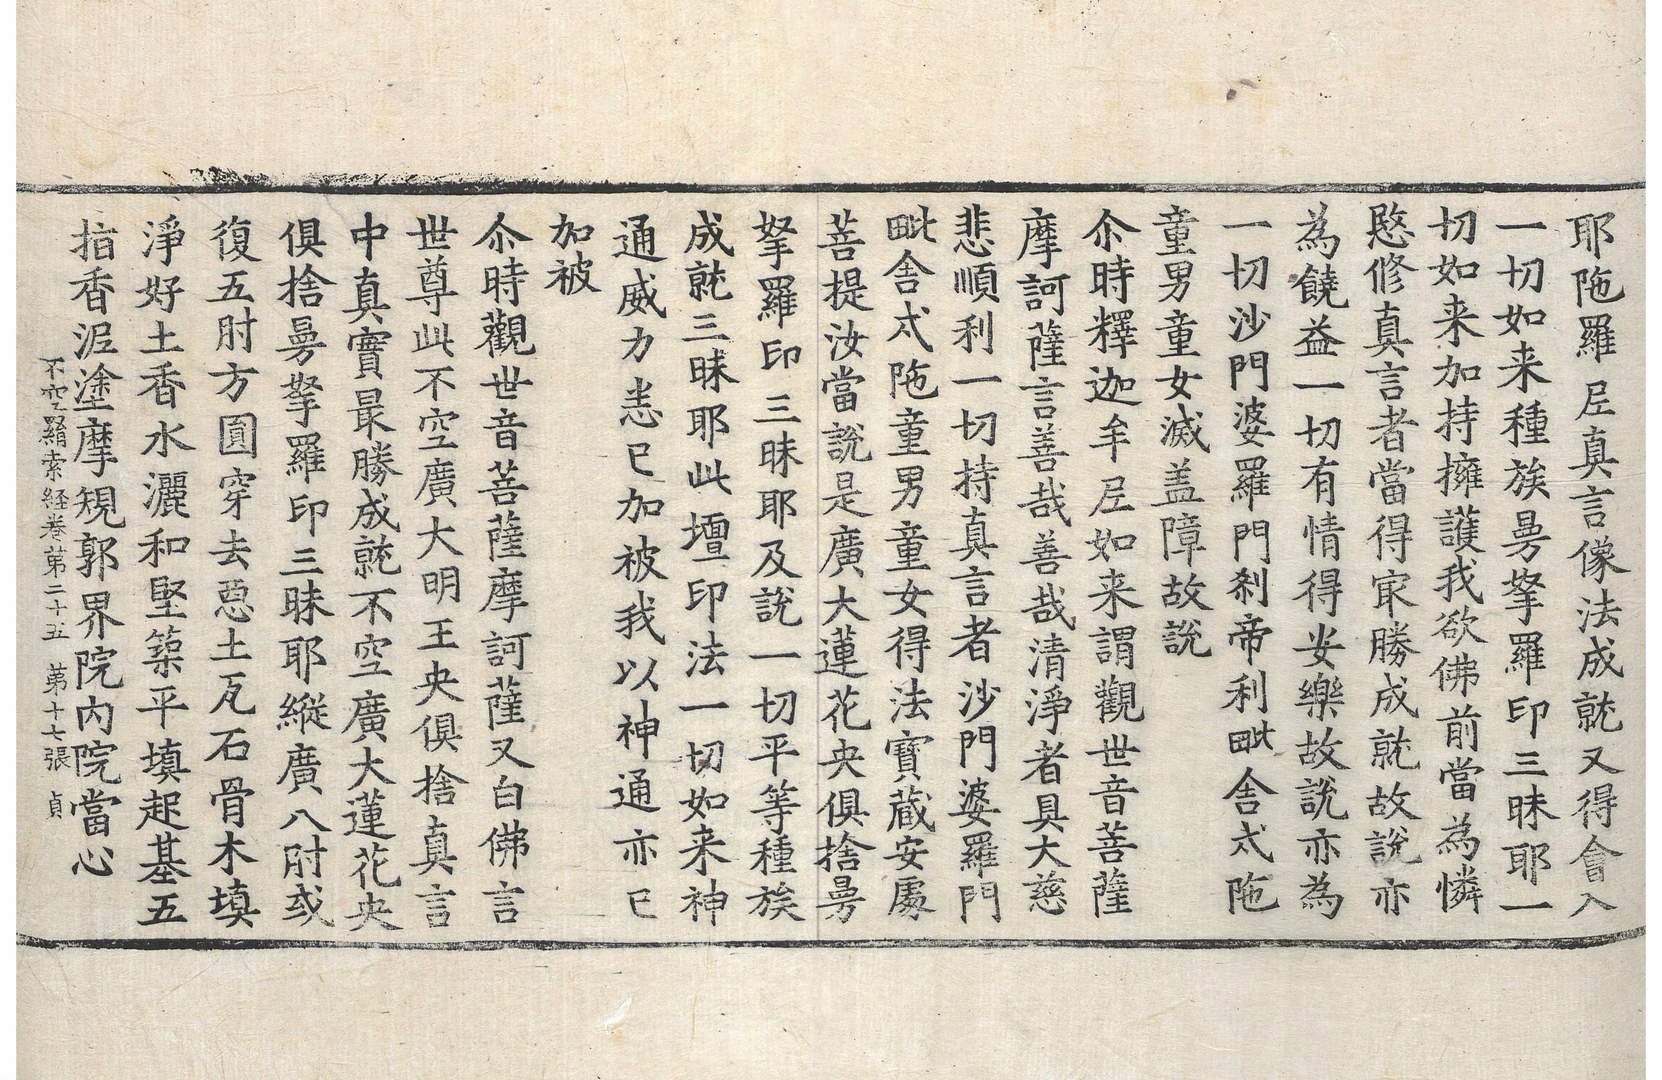 耶陁羅𡰱真言像法成就又得會入
一切如来種族曼拏羅印三昧耶一
切如来加持擁護我欲佛前當為憐
愍修真言者當得㝡勝成就故說亦
為饒益一切有情得安樂故說亦為
一切沙門婆羅門刹帝利毗舍戍陁
童男童女滅盖障故說
尒時釋迦牟𡰱如来謂觀世音菩薩
摩訶薩言善哉善哉清淨者具大慈
悲順利一切持真言者沙門婆羅門
毗舍戍陁童男童女得法寶蔵安處
菩提汝當說是廣大蓮花央俱捨曼
拏羅印三昧耶及說一切平等種族
成就三昧耶此壇印法一切如来神
通威力悉已加被我以神通亦已
加被
尒時觀世音菩薩摩訶薩又白佛言
世尊此不空廣大明王央俱捨真言
中真實最勝成就不空廣大蓮花央
俱捨曼拏羅印三昧耶縱廣八肘或
復五肘方圓穿去惡土瓦石骨木填
淨好土香水灑和堅築平填起基五
指香泥塗摩規郭界院內院當心
不空羂索経卷第二十五　第十七張　貞